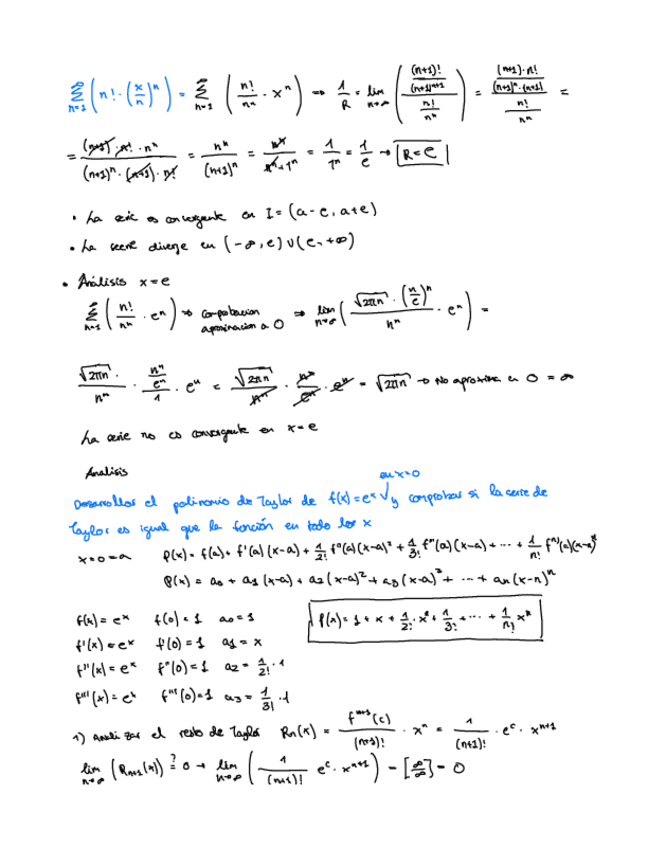 $\sum_{n=1}^{\infty} \left( n! \cdot \left( \frac{x}{n} \right)^n \right) = \sum_{n=1}^{\infty} \left( \frac{n!}{n^n} \cdot x^n \right) \Rightarrow \frac{1}{R} = \lim_{n \to \infty} \left( \frac{\frac{(n+1)!}{(n+1)^{n+1}}}{\frac{n!}{n^n}} \right) = \frac{\frac{(n+1) \cdot n!}{(n+1)^n \cdot (n+1)}}{\frac{n!}{n^n}} =$
$= \frac{(n+1) \cdot n! \cdot n^n}{(n+1)^n \cdot (n+1) \cdot n!} = \frac{n^n}{(n+1)^n} = \frac{n^n}{n^n + 1^n} = \frac{1}{1^n} = \frac{1}{e} \to R = e$
• La serie es convergente en I = (a - e, a + e)
• La serie diverge en (-∞, e) ∪ (e, +∞)
• Análisis x = e
$\sum_{n=1}^{\infty} \left( \frac{n!}{n^n} \cdot e^n \right) \Rightarrow$ comprobacion aproximacion a 0 $\Rightarrow \lim_{n \to \infty} \left( \frac{\sqrt{2\pi n} \cdot \left( \frac{n}{e} \right)^n}{n^n} \cdot e^n \right) =$
$\frac{\sqrt{2\pi n} \cdot}{n^n} \cdot \frac{\frac{n^n}{e^n}}{1} \cdot e^n = \frac{\sqrt{2\pi n}}{n^n} \cdot \frac{n^n}{e^n} \cdot e^n = \sqrt{2\pi n} \to$ No aproxima en 0 = ∞
La serie no es convergente en x = e
Analisis
en x=0
Desarrollar el polinomio de Taylor de f(x) = e^x y comprobar si la serie de
Taylor es igual que la función en todo los x
x = 0 = a $P(x) = f(a) + f'(a)(x-a) + \frac{1}{2!} f''(a)(x-a)^2 + \frac{1}{3!} f'''(a)(x-a) + \cdots + \frac{1}{n!} f^{n)}(a)(x-a)^n$
$P(x) = a_0 + a_1(x-a) + a_2(x-a)^2 + a_3(x-a)^3 + \cdots + a_n(x-n)^n$
f(x) = e^x f(0) = 1 a_0 = 1 $P(x) = 1 + x + \frac{1}{2!} \cdot x^2 + \frac{1}{3!} + \cdots + \frac{1}{n!} x^n$
f'(x) = e^x f'(0) = 1 a_1 = x
f''(x) = e^x f''(0) = 1 $a_2 = \frac{1}{2!} \cdot 1$
f'''(x) = e^x f'''(0) = 1 $a_3 = \frac{1}{3!} \cdot 1$
1) Analizar el resto de Taylor $R_n(x) = \frac{f^{n+1}(c)}{(n+1)!} \cdot x^n = \frac{1}{(n+1)!} \cdot e^c \cdot x^{n+1}$
$\lim_{n \to \infty} (R_{n+1}(x)) \overset{?}{=} 0 \to \lim_{n \to \infty} \left( \frac{1}{(n+1)!} e^c \cdot x^{n+1} \right) = \left[ \frac{\infty}{\infty} \right] = 0$